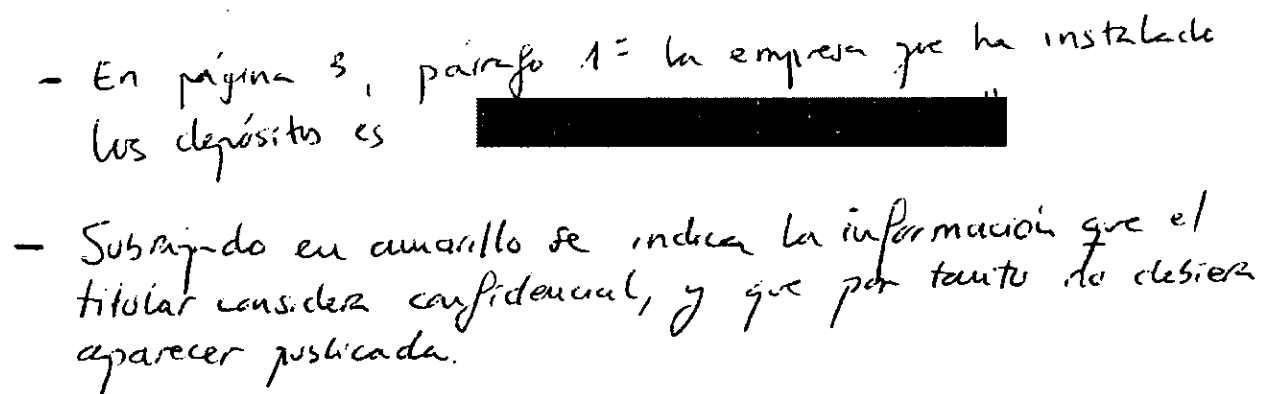 - En página 3, párrafo 1º la empresa que ha instalado
los depósitos es "
- Subrayado en amarillo se indica la información que el
titular considera confidencial, y que por tanto no debiera
aparecer publicada.